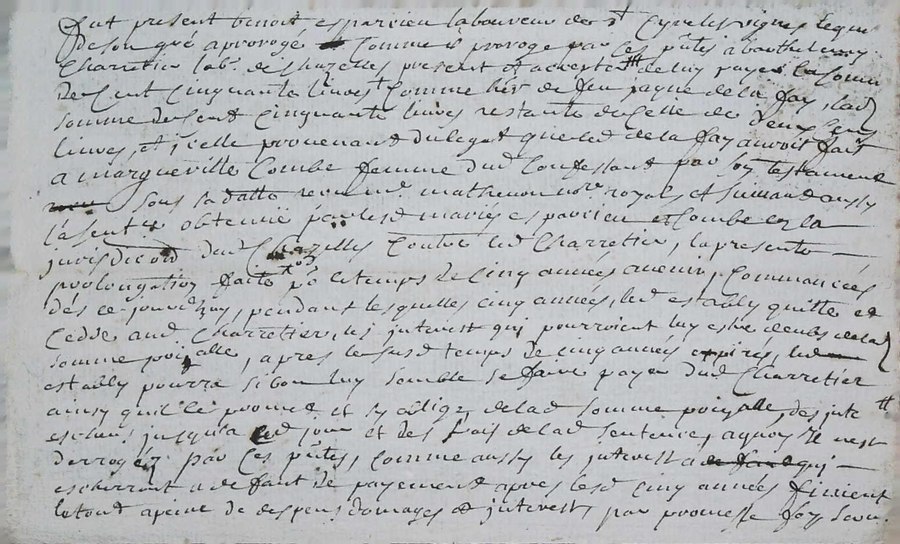 fut present benoit esparvieu laboureur de st Cyr les vignes lequel
de son gré a prorogé comme il proroge par ces pntes a barthelemy
Charretier labr de Chazelles present et acceptant de luy payer la somme
de Cent cinquante livres comme hers de feu payne de la fay, lad
somme de Cent cinquante livres restante de Celle de deux Cens
livres, et jcelle provenant du legat que led de la fay auroit fait
a margueritte Combe femme dud Confessant par son testament
sous sa datte receu me mathevon nore royal, et suivant aussy
la sentce obtenue par lesd mariés esparvieu et Combe en la
jurisdicon dud Chazelles Contre led Charretier, la presente
prolongation faitte pr le temps de Cinq années avenir, Commancées
dés ce-jourdhuy, pendant lesquelles cinq années, led estably quitte et
Cedde aud Charretier, les jnterest qui pourroient luy estre deubs de lad
somme poipalle, apres le susd temps de cinq années expirés, led
estably pourra si bon luy semble se faire payer dud Charretier
ainsy quil le promet et sy oblige de lad somme poipalle, des jnte
escheus jusqua led jour et des frais de lad sentence, aquoy Il nest
derrogéz par Ces pntes, Comme aussy les jnterest qui
escherront a defaut de payement apres lesd cinq années finient
le tout a peine de despens domages et jnterest, par promesse foy, soum.